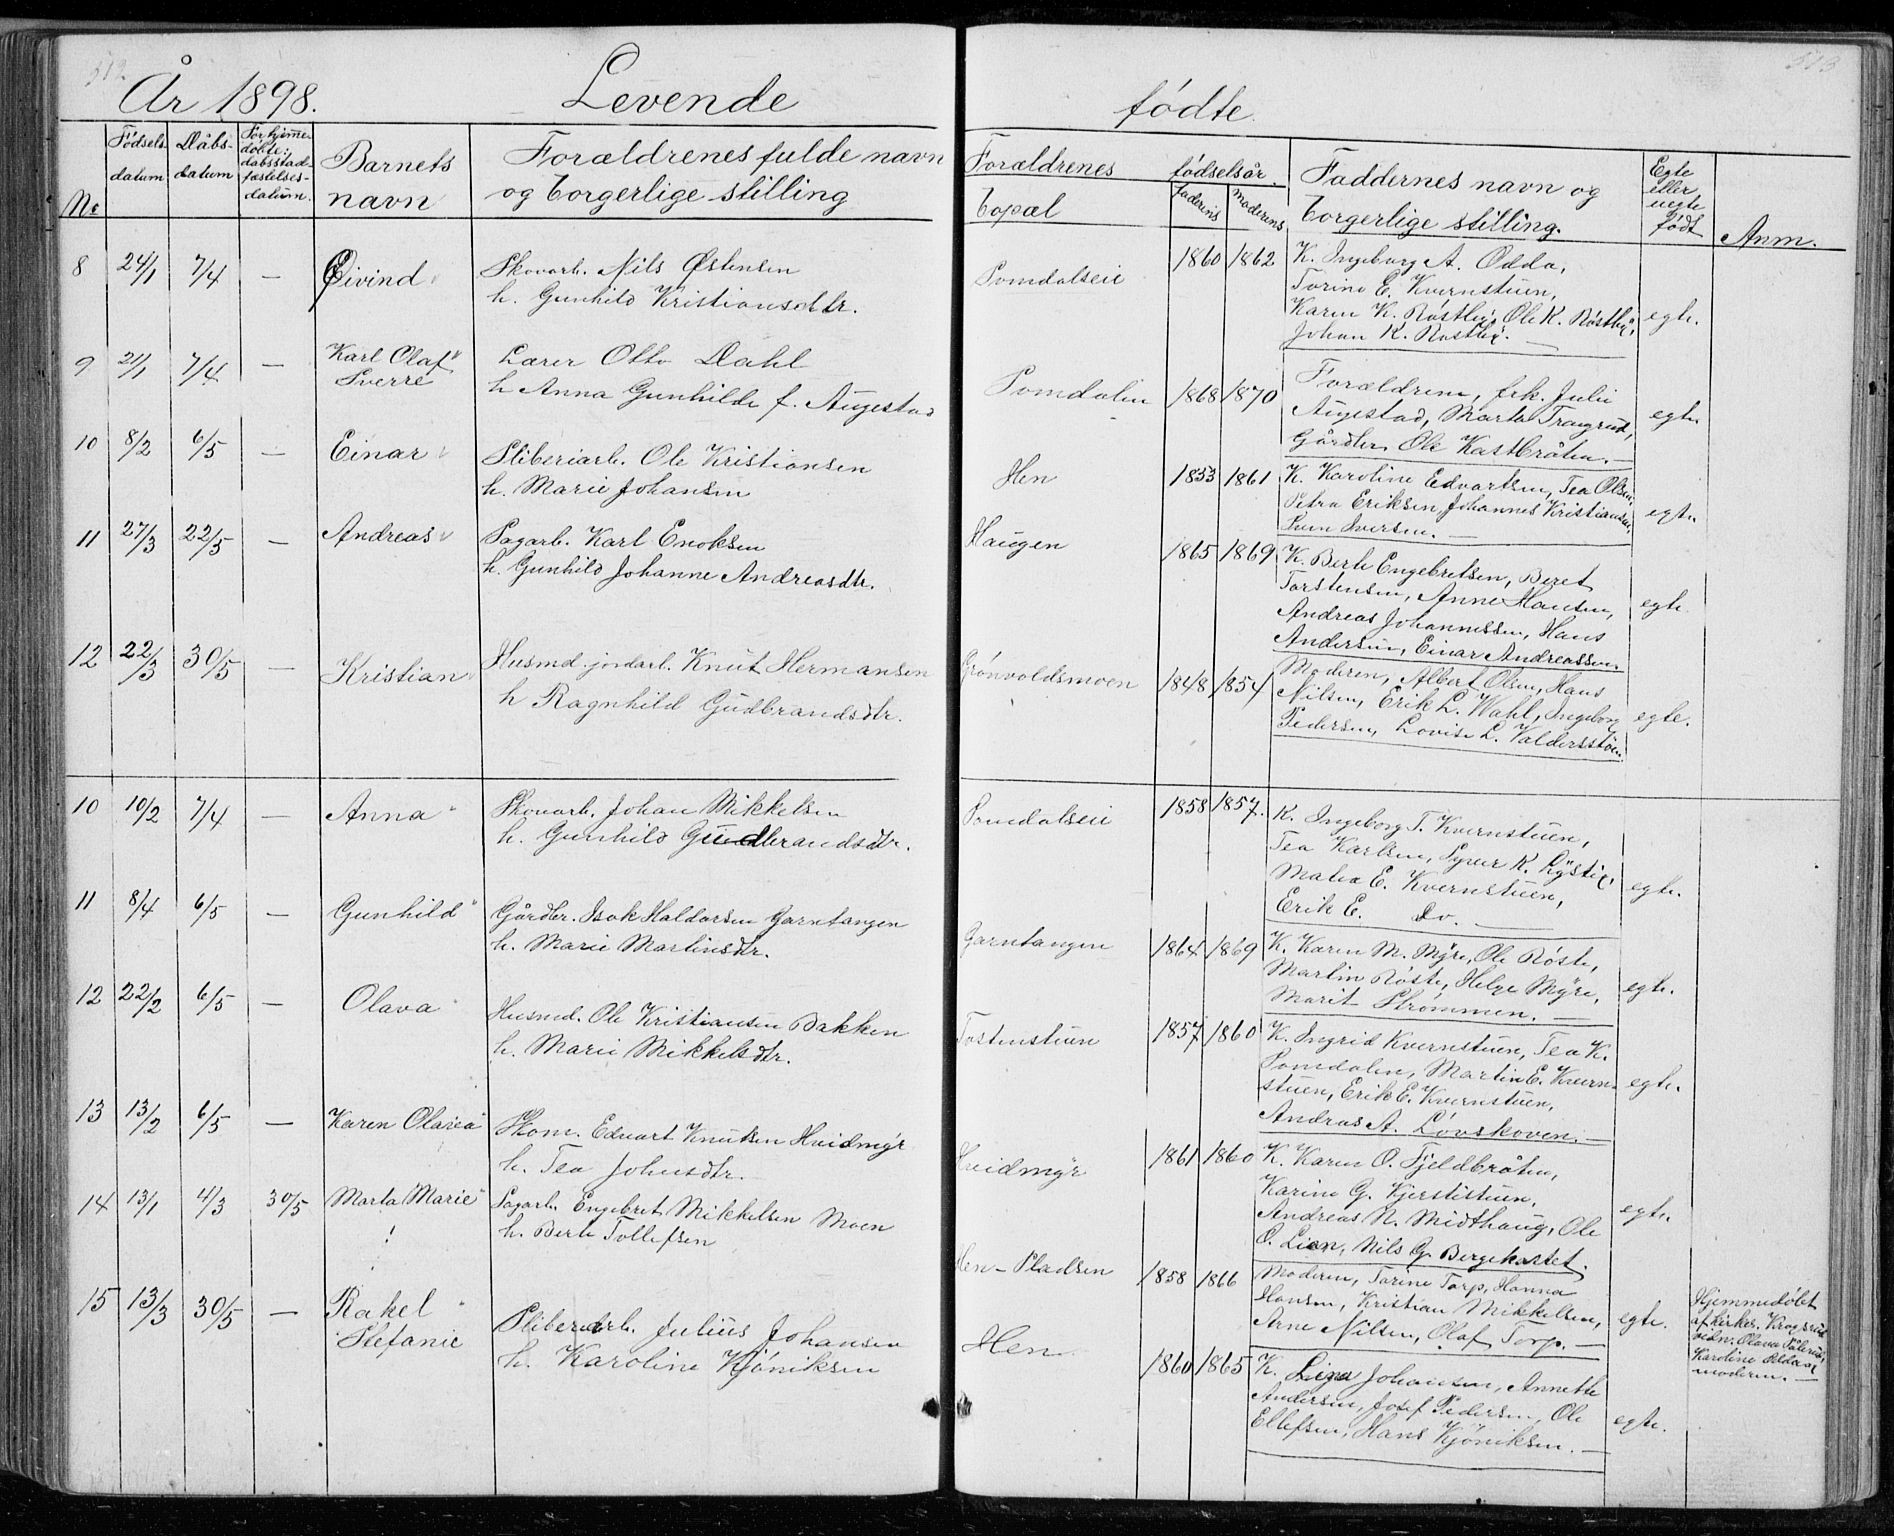 512
513
År 1898. Levende fødte.
No
Fødsels-
datum
Dåbs-
datum
For hjemme-
døbte:
dåbsstad-
fæstelses-
datum.
Barnets
navn
Forældrenes fulde navn
og borgerlige stilling
Forældrenes
bopæl
fødselsår.
Faderens
Moderens
Faddernes navn og
borgerlige stilling.
Egte
eller
uegte
født
Anm.
8 24/1 7/4 — Eivind
Skovarb. Nils Østensen
h. Gunhild Kristiansdtr.
Somdalseie 1860 1862
K. Ingeborg A. Odda,
Torine E. Kvernstuen,
Karen K. Røstlie, Ole K. Røstlie,
Johan K. Røstlie. —
egte.
9 21/1 7/4 — Karl Olaf
Sverre
Lærer Otto Dahl
h. Anna Gunhilde f. Augestad
Somdalen 1868 1870
Forældrene, frk. Julie
Augestad, Marta Trangrud,
Gårdbr. Ole Kastbråten. —
egte
10 8/2 6/5 — Einar
Sliberiarb. Ole Kristiansen
h. Marie Johansen
Hen 1853 1861
K. Karoline Edvartsen, Tea Olsen,
Petra Eriksen, Johannes Kristiansen,
Sven Iversen. —
egte
11 27/3 22/5 — Andreas
Sagarb. Karl Enoksen
h. Gunhild Johanne Andreasdtr.
Haugen 1865 1869
K. Berte Engebretsen, Beret
Torstensen, Anne Hansen,
Andreas Johannessen, Hans
Andersen, Einar Andreassen.
egte.
12 22/3 30/5 — Kristian
Husmd. jordarb. Knut Hermansen
h. Ragnhild Gudbrandsdtr.
Grønvoldsmoen 1848 1854
Moderen, Albert Olsen, Hans
Nilsen, Erik L. Wahl, Ingeborg
Pedersen, Lovise L. Valdersstøen.
egte.
10 10/2 7/4 — Anna
Skovarb. Johan Mikkelsen
h. Gunhild Gudbrandsdtr.
Somdalseie 1858 1857.
K. Ingeborg T. Kvernstuen,
Tea Karlsen, Syver K. Rystie,
Malea E. Kvernstuen,
Erik E. do. —
egte.
11 8/4 6/5 — Gunhild
Gårdbr. Isak Haldorsen Garntangen
h. Marie Martinsdtr.
Garntangen 1864 1869
K. Karen M. Myre, Ole Røste,
Martin Røste, Helge Myre,
Marit Strømmen. —
egte.
12 22/2 6/5 — Olava
Husmd. Ole Kristiansen Bakken
h. Marie Mikkelsdtr.
Tostenstuen 1857 1860
K. Ingrid Kvernstuen, Tea K.
Somdalen, Martin E. Kvern-
stuen, Erik E. Kvernstuen,
Andras A. Løvskoven. —
egte.
13 13/2 6/5 — Karen Olavea
Skom. Edvart Knutsen Hvidmyr
h. Tea Johnsdtr.
Hvidmyr 1861 1860
K. Karen O. Fjeldbråten,
Karine G. Kjerstistuen,
Andreas N. Midthaug, Ole
O. Lien, Nils G. Bergekastet.
egte.
14 13/1 4/3 30/5 Marta Marie
Sagarb. Engebret Mikkelsen Moen
h. Berte Tollefsen
Hen-Pladsen 1858 1866
Moderen, Torine Torp, Hanna
Hansen, Kristian Mikkelsen,
Arne Nilsen, Olaf Torp. —
egte.
Hjemmedøbt
af kirkes. Kragsrud
vidn. Olava
Karoline
moderen. —
15 13/3 30/5 — Rakel
Stefanie
Sliberiarb. Julius Johansen
h. Karoline Kjøniksen
Hen 1860 1865
K. Lina Johansen, Annette
Andersen, Josef Pedersen, Ole
Ellefsen, Hans Kjøniksen. —
egte.